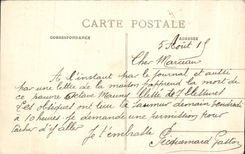 CARTE POSTALE
CORRESPONDANCE
ADRESSE
5 Août 15
Cher Marceau
A l'instant par le journal et aussi
par une lettre de la maison j'apprends la mort de
ce pauvre
Les obsèques ont lieu à Saumur demain vendredi
à 10 heures je demande une permission pour
tâcher d'y aller Je t'embrasse
Gaston